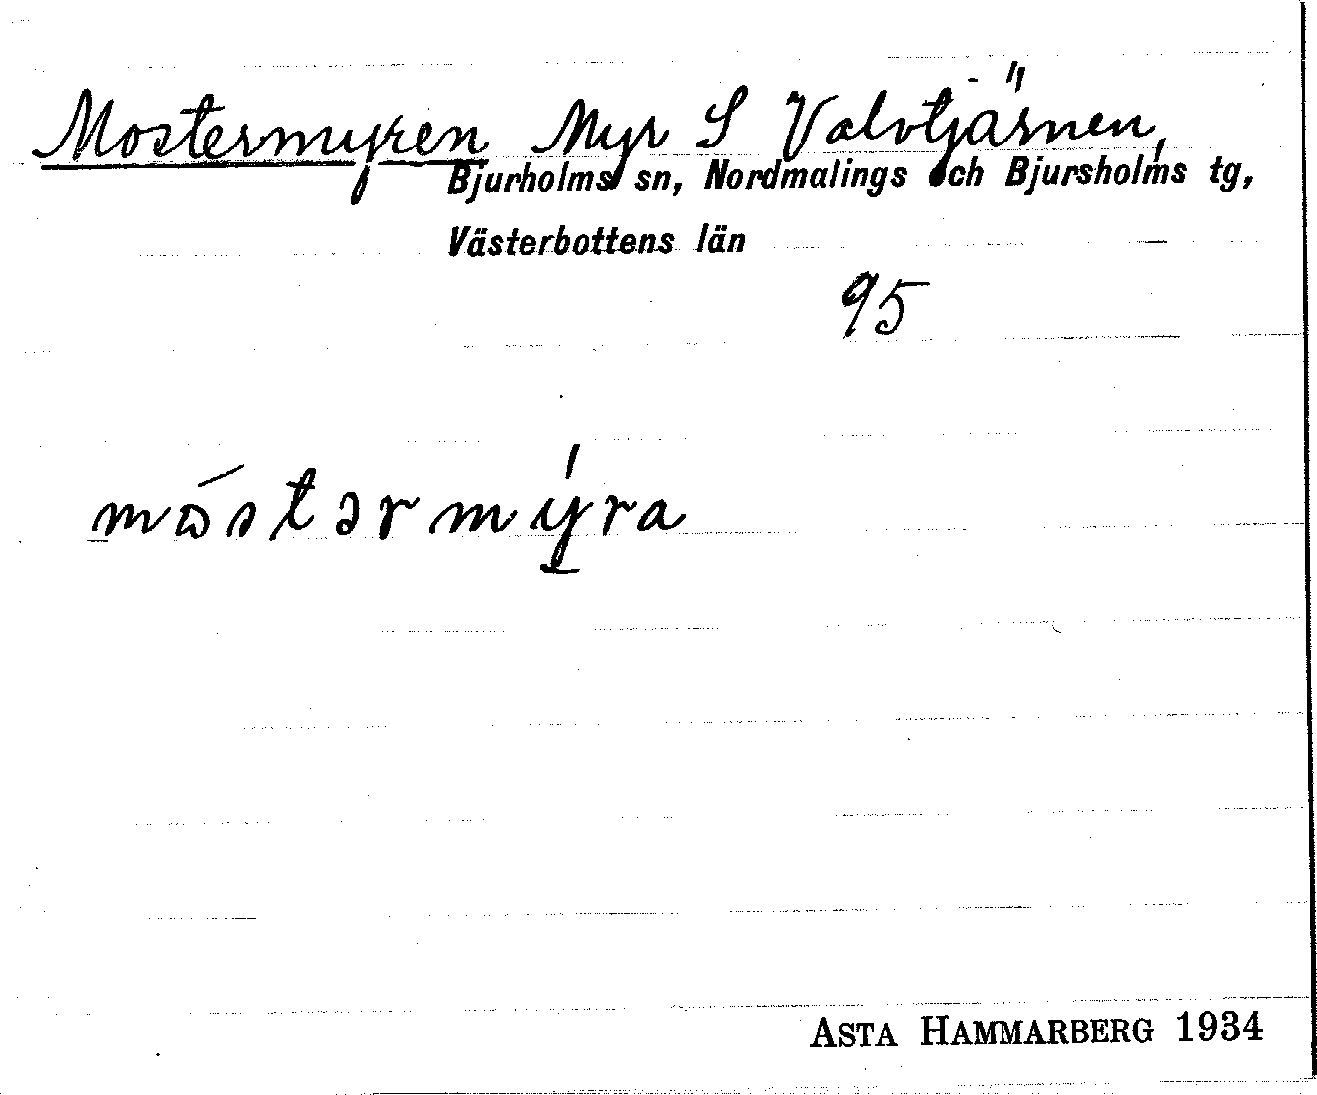 Mostermyren Myr S Valvtjärnen,
Bjurholms sn, Nordmalings och Bjursholms tg,
Västerbottens län
95
móstərmýra
ASTA HAMMARBERG 1934